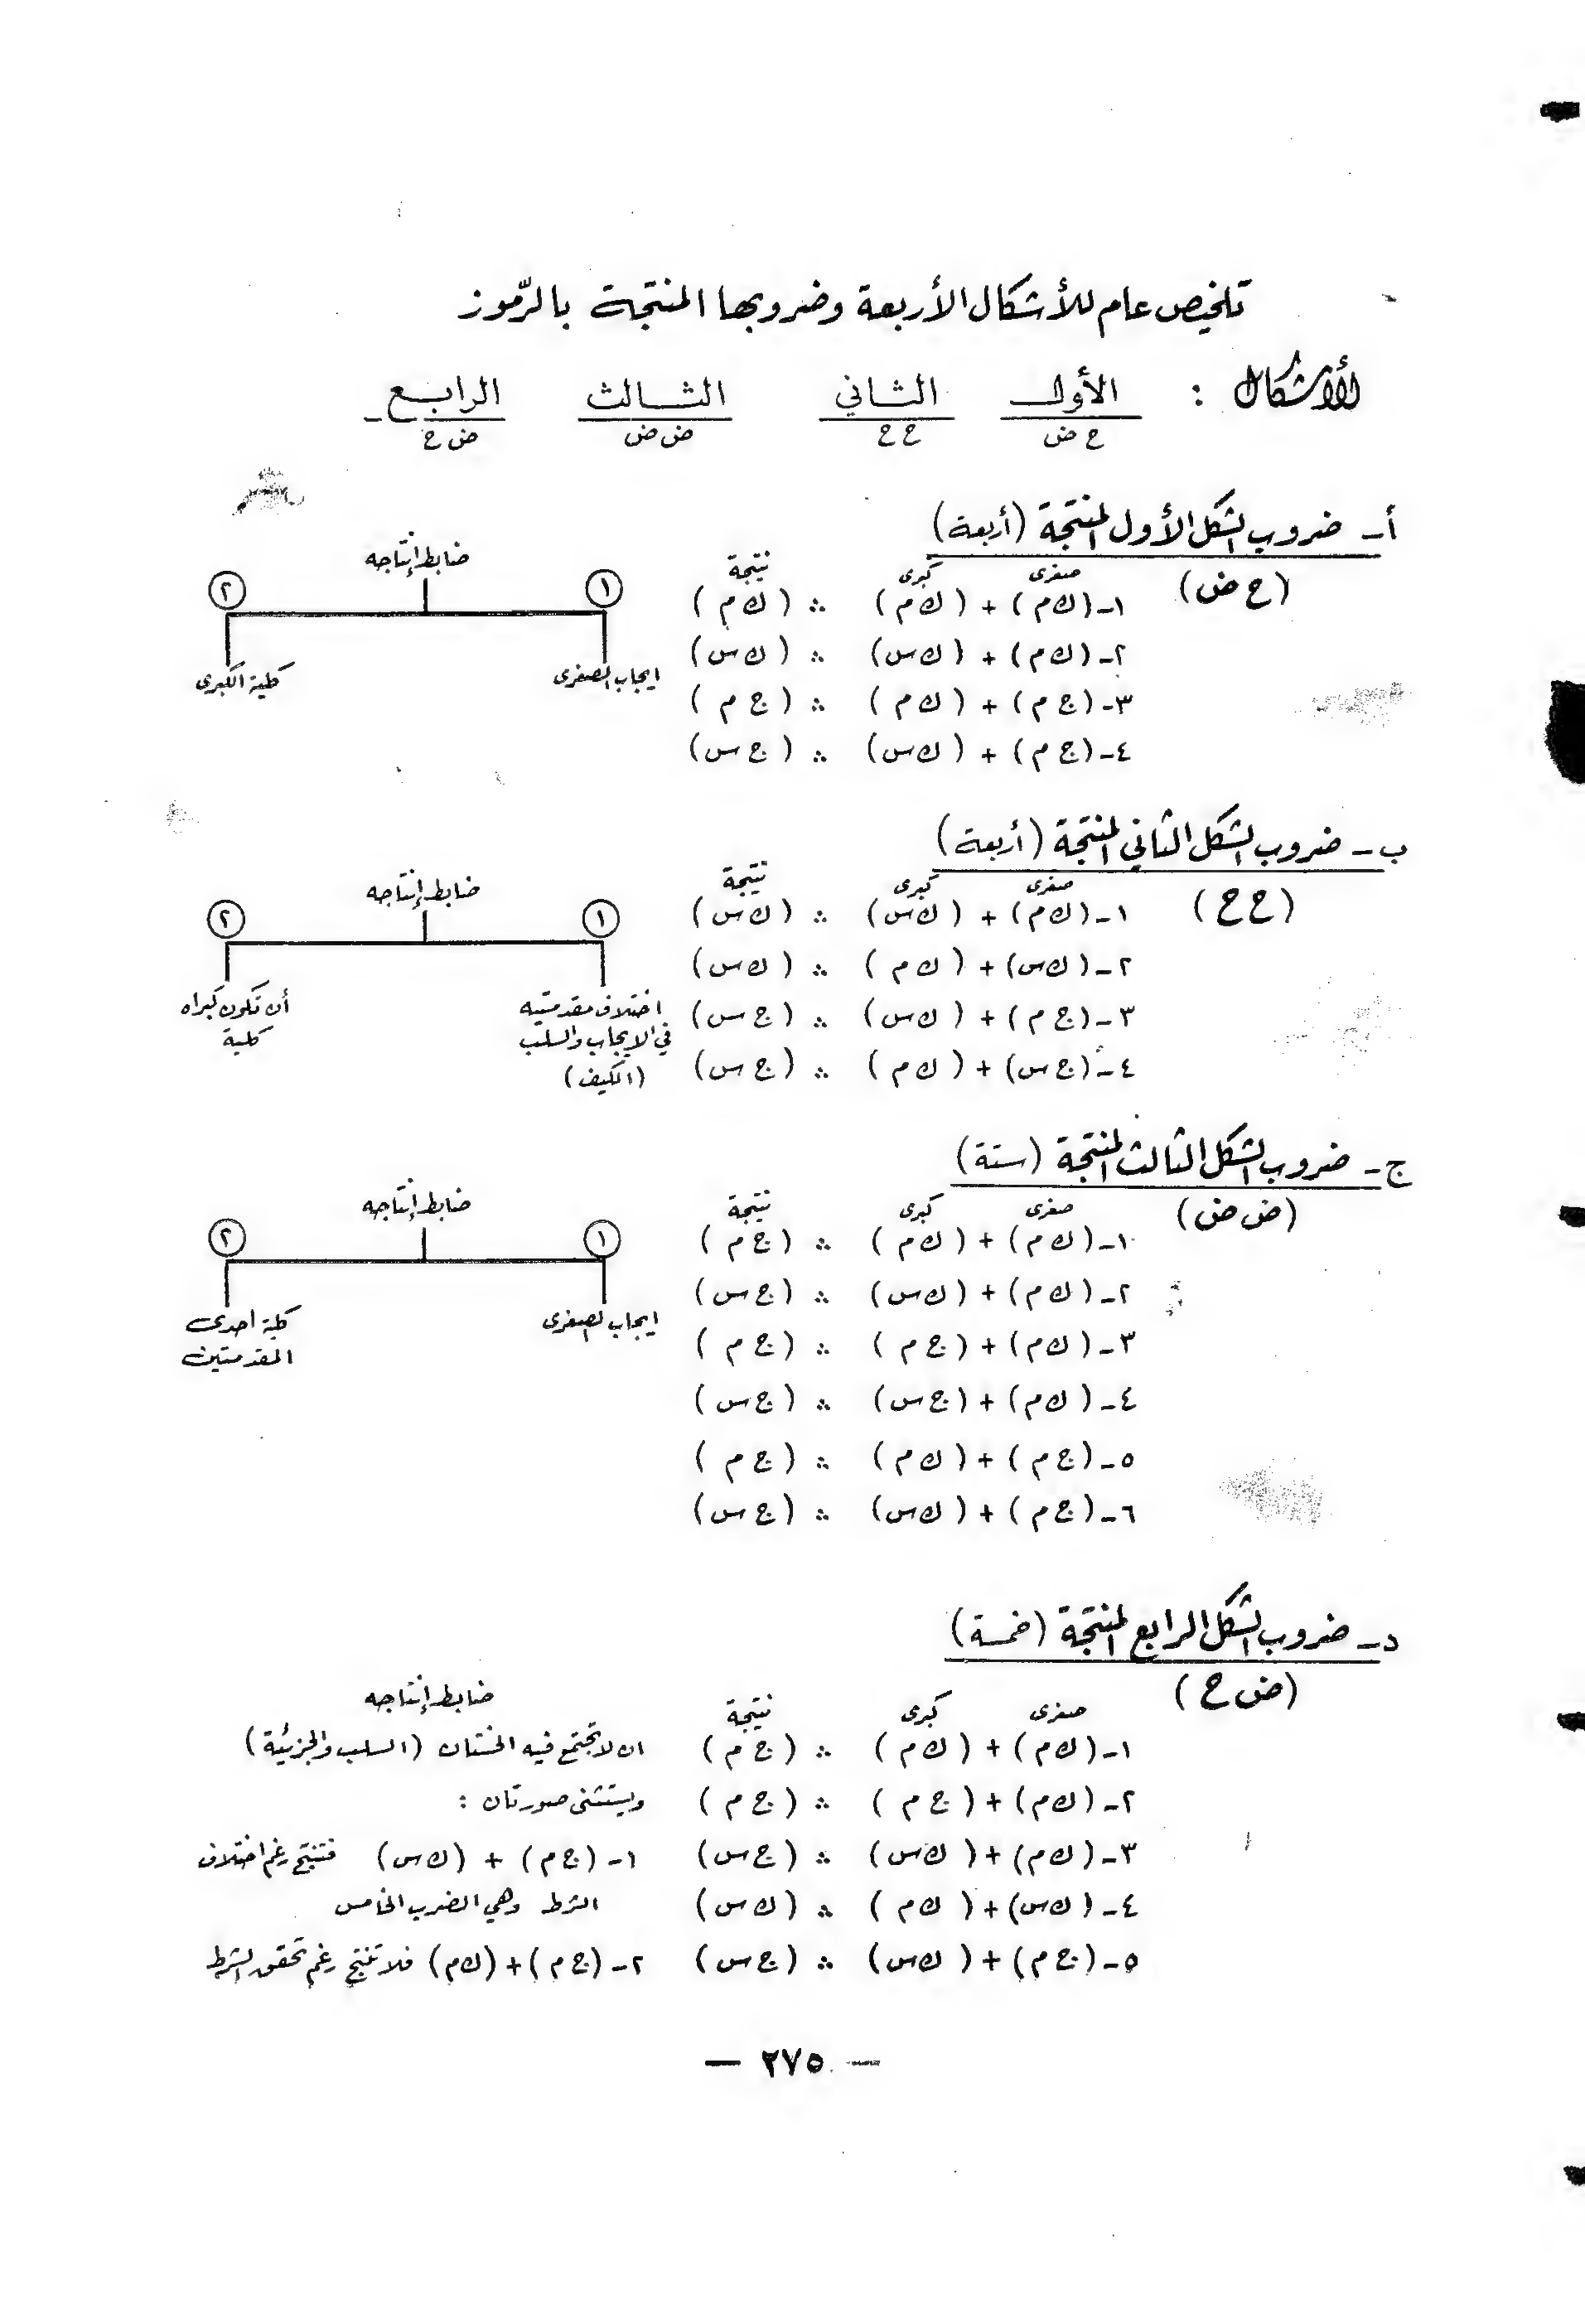 تلخيص عام للأشكال الأربعة وضروبها المنتجة بالرّموز
الأشكال : الأول الثاني الثالث الرابع
ح ض ح ح ض ض ض ح
أ - ضروب الشكل الأول المنتجة (أربعة)
(ح ض)
صغرى كبرى نتيجة
١- (ك م) + (ك م) ∴ (ك م)
٢- (ك م) + (ك س) ∴ (ك س)
٣- (ج م) + (ك م) ∴ (ج م)
٤- (ج م) + (ك س) ∴ (ج س)
ضابط إنتاجه
١ ٢
ايجاب الصغرى كلية الكبرى
ب - ضروب الشكل الثاني المنتجة (أربعة)
(ح ح)
صغرى كبرى نتيجة
١- (ك م) + (ك س) ∴ (ك س)
٢- (ك س) + (ك م) ∴ (ك س)
٣- (ج م) + (ك س) ∴ (ج س)
٤- (ج س) + (ك م) ∴ (ج س)
ضابط إنتاجه
١ ٢
اختلاف مقدمتيه أن تكون كبراه
في الايجاب والسلب كلية
(الكيف)
ج - ضروب الشكل الثالث المنتجة (ستة)
(ض ض)
صغرى كبرى نتيجة
١- (ك م) + (ك م) ∴ (ج م)
٢- (ك م) + (ك س) ∴ (ج س)
٣- (ك م) + (ج م) ∴ (ج م)
٤- (ك م) + (ج س) ∴ (ج س)
٥- (ج م) + (ك م) ∴ (ج م)
٦- (ج م) + (ك س) ∴ (ج س)
ضابط إنتاجه
١ ٢
ايجاب الصغرى كلية احدى
المقدمتين
د - ضروب الشكل الرابع المنتجة (خمسة)
(ض ح)
صغرى كبرى نتيجة
١- (ك م) + (ك م) ∴ (ج م)
٢- (ك م) + (ج م) ∴ (ج م)
٣- (ك م) + (ك س) ∴ (ج س)
٤- (ك س) + (ك م) ∴ (ك س)
٥- (ج م) + (ك س) ∴ (ج س)
ضابط إنتاجه
ان لا تجتمع فيه الخستان (السلب والجزئية)
ويستثنى صورتان :
١- (ج م) + (ك س) فتنتج رغم اختلاف
الشرط وهي الضرب الخامس
٢- (ج م) + (ك م) فلا تنتج رغم تحقق الشرط
— ٢٧٥ —